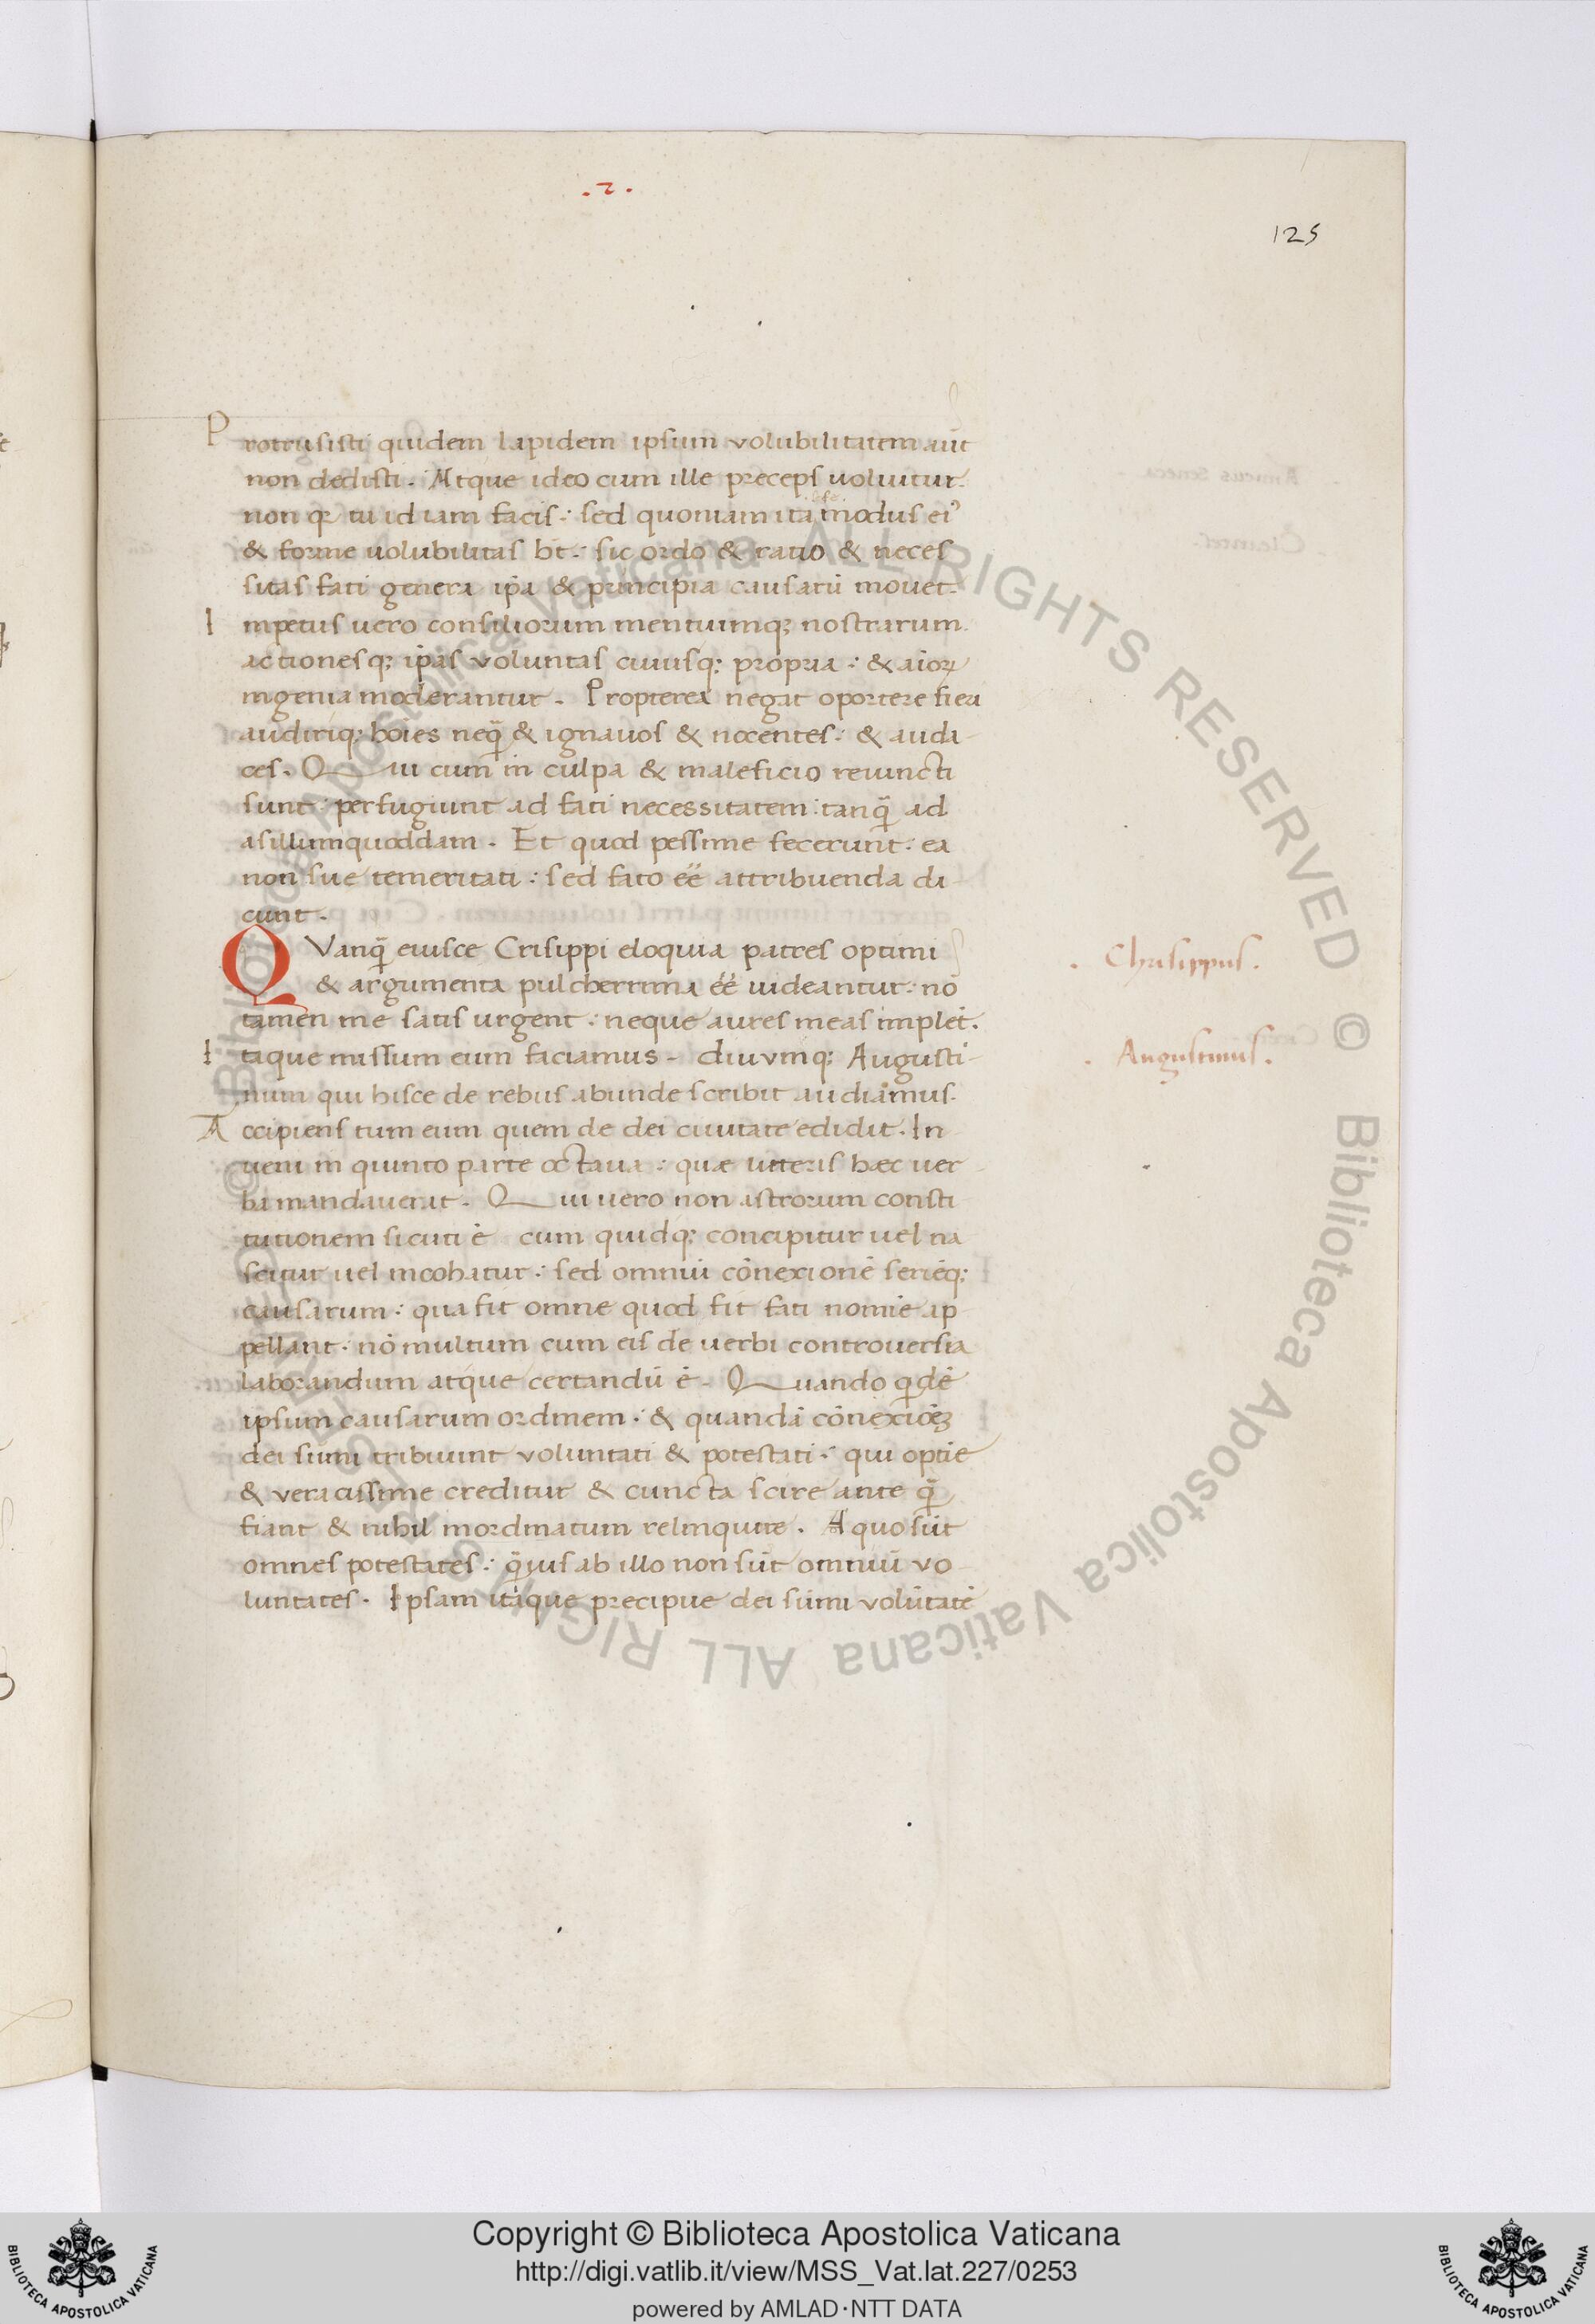 .2.
125
Protrusisti quidem lapidem ipsum volubilitatem aūt
non dedisti. Atque ideo cum ille preceps uoluitur.
non qr tu id iam facis: sed quoniam ita sese modus ei᾽
& forme uolubilitas ht: sic ordo & ratio & neces
sitas fati genera ip̄a & principia causarū mouet.
Impetus uero consiliorum mentiumq; nostrarum
actionesq; ip̄as voluntas cuiusq; propria: & aīorꝝ
ingenia moderantur. Propterea negat oportere fieri
audiriq; hoīes neq̄ & ignauos & nocentes: & auda
ces. Qui cum in culpa & maleficio reiuncti
sunt: perfugiunt ad fati necessitatem: tanq̄ ad
asillum quoddam. Et quod pessime fecerunt: ea
non sue temeritati: sed fato ēē attribuenda di
cunt.
QVanq̄ eiusce Crisippi eloquia patres optimi
& argumenta pulcherrima ēē uideantur: nō
tamen me satis urgent: neque aures meas implēt.
Itaque missum eum faciamus. diuumq; Augusti
num qui hisce de rebus abunde scribit audiamus.
Accipiens tum eum quem de dei ciuitate edidit. In
ueni in quinto parte octaua: quæ litteris hæc uer
ba mandauerat. Qui uero non astrorum consti
tutionem sicuti ē cum quidq; concipitur uel na
scitur uel incohatur: sed omniū cōnexionē seriēq;
causarum: qua fit omne quod fit fati nomīe ap
pellant. nō multum cum eis de uerbi controuersia
laborandum atque certandū ē. Quando qidē
ipsum causarum ordinem: & quandā cōnexiōēꝫ
dei sūmi tribuunt voluntati & potestati: qui optīe
& veracissime creditur & cuncta scire ante q̄
fiant & nihil inordinatum relinquere. A quo sūt
omnes potestates: q̄uis ab illo non sūt omniū vo
luntates. Ipsam itaque precipue dei sūmi volūtatē
. Chrisippus.
. Augustinus.
Copyright © Biblioteca Apostolica Vaticana
http://digi.vatlib.it/view/MSS_Vat.lat.227/0253
powered by AMLAD·NTT DATA